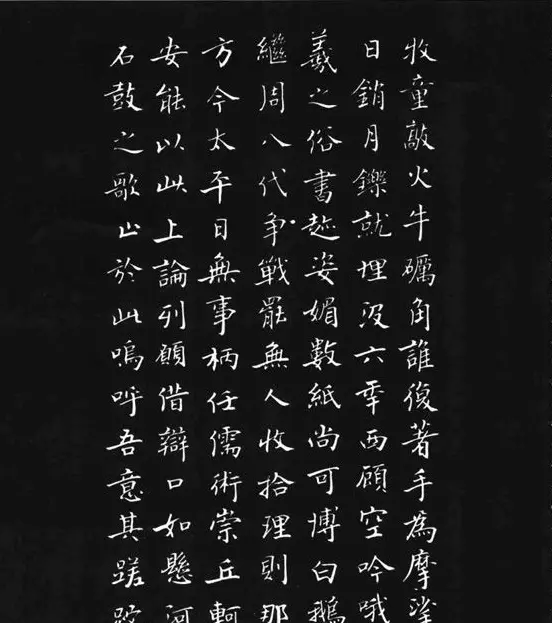 牧童敲火牛礪角誰復著手為摩挲
日銷月鑠就埋沒六年西顧空吟哦
羲之俗書趁姿媚數紙尚可博白鵝
繼周八代争戰罷無人收拾理則那
方今太平日無事柄任儒術崇丘軻
安能以此上論列願借辯口如懸河
石鼓之歌止於此嗚呼吾意其蹉跎